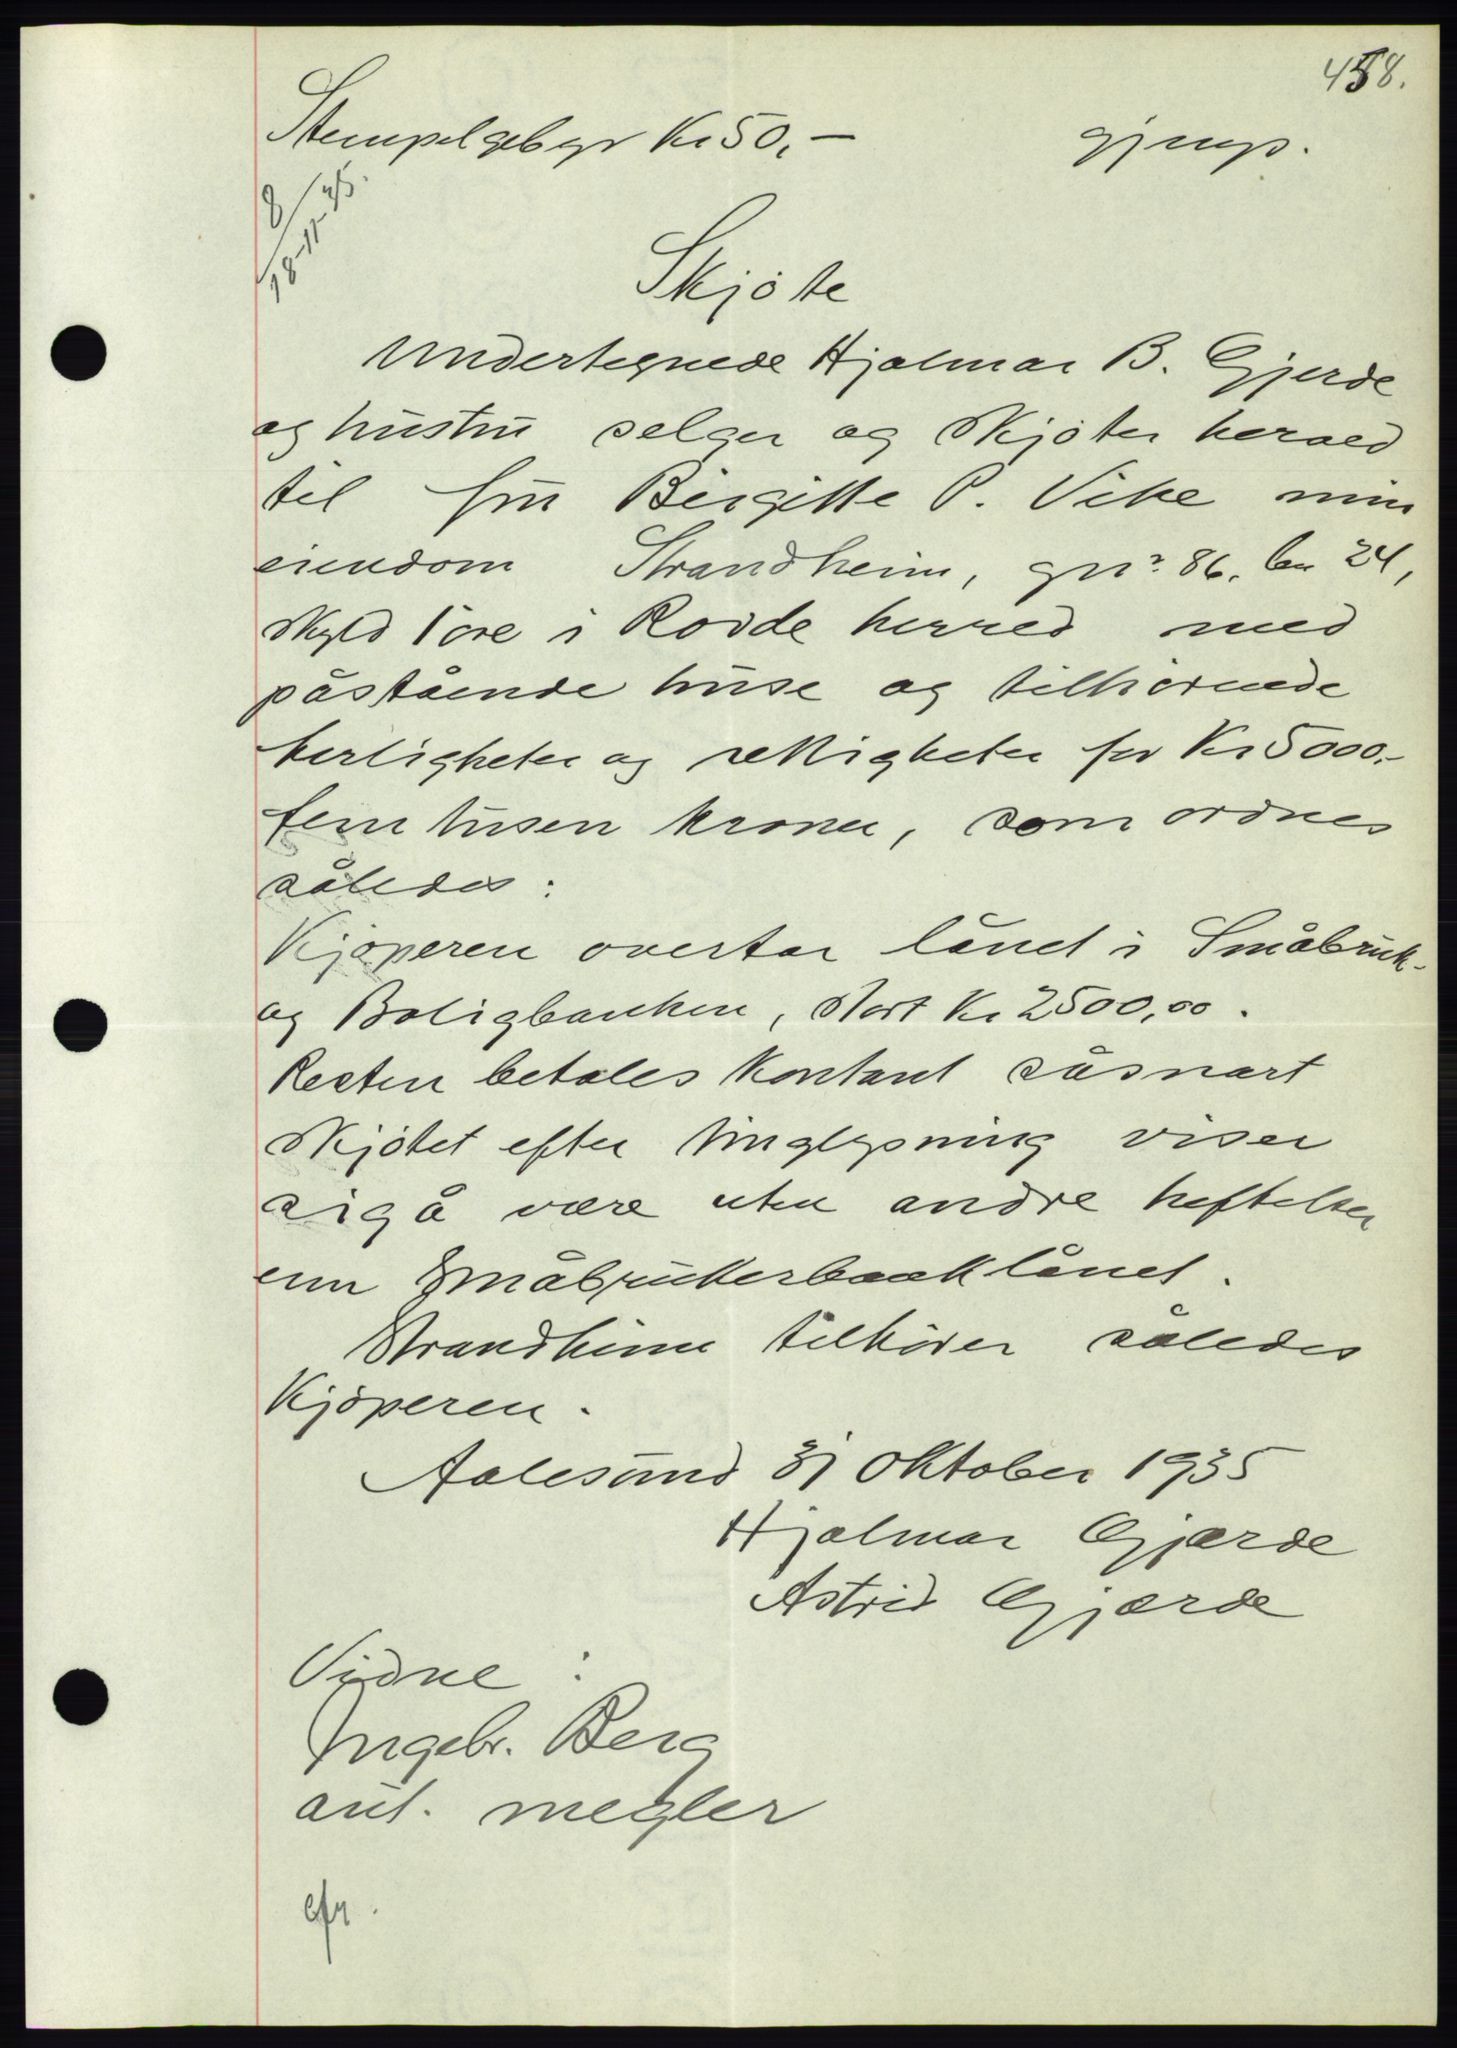 458.
Stempelgebyr Kr 50,- gjenp.
8/18-11-35.
Skjöte
Undertegnede Hjalmar B. Gjerde
og hustru selger og skjöter herved
til fru Birgitte P. Vike min
eiendom Strandheim, gnr. 86, bn 24,
skyld 1 öre i Rovde herred med
påstående huse og tilhörende
herligheter og rettigheter for Kr 5000.-
fem tusen kroner, som ordnes
således:
Kjöperen overtar lånet i Småbruk-
og Boligbanken, stort Kr 2500,00.
Resten betales kontant såsnart
skjötet efter tinglysning viser
sig å være uten andre heftelser
enn Småbrukerbanklånet.
Strandheim tilhörer således
Kjöperen.
Aalesund 31 oktober 1935
Hjalmar Gjærde
Astrid Gjærde
Vidne:
Ingebr. Berg
aut. megler